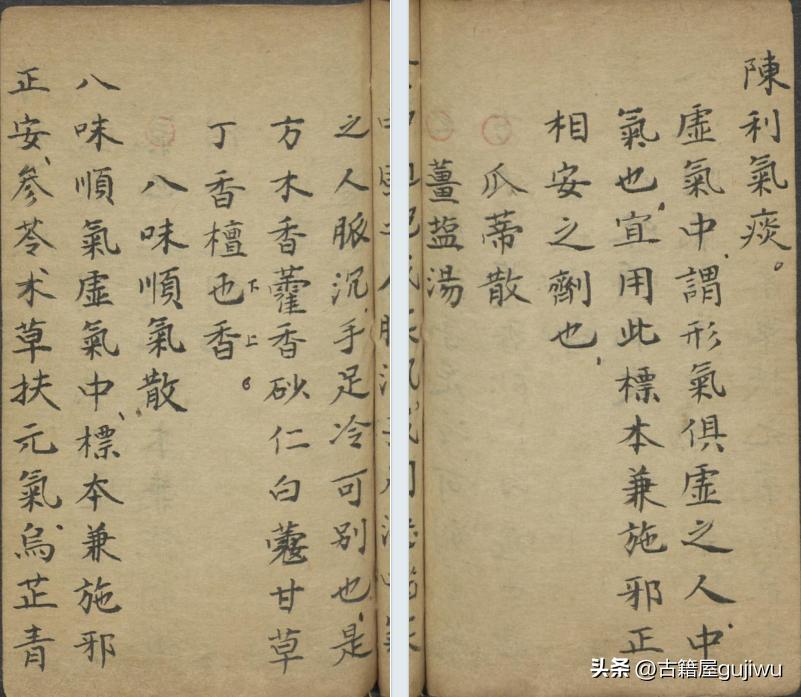 陳利氣痰。
虛氣中謂形氣俱虛之人中
氣也宜用此標本兼施邪正
相安之劑也
瓜蒂散
薑盐湯
之人脈沉手足冷可別也是
方木香藿香砂仁白蔻甘草
丁香檀也下香上
八味順氣散
八味順氣虛氣中標本兼施邪
正安參苓术草扶元氣烏芷青
头条 @古籍屋gujiwu